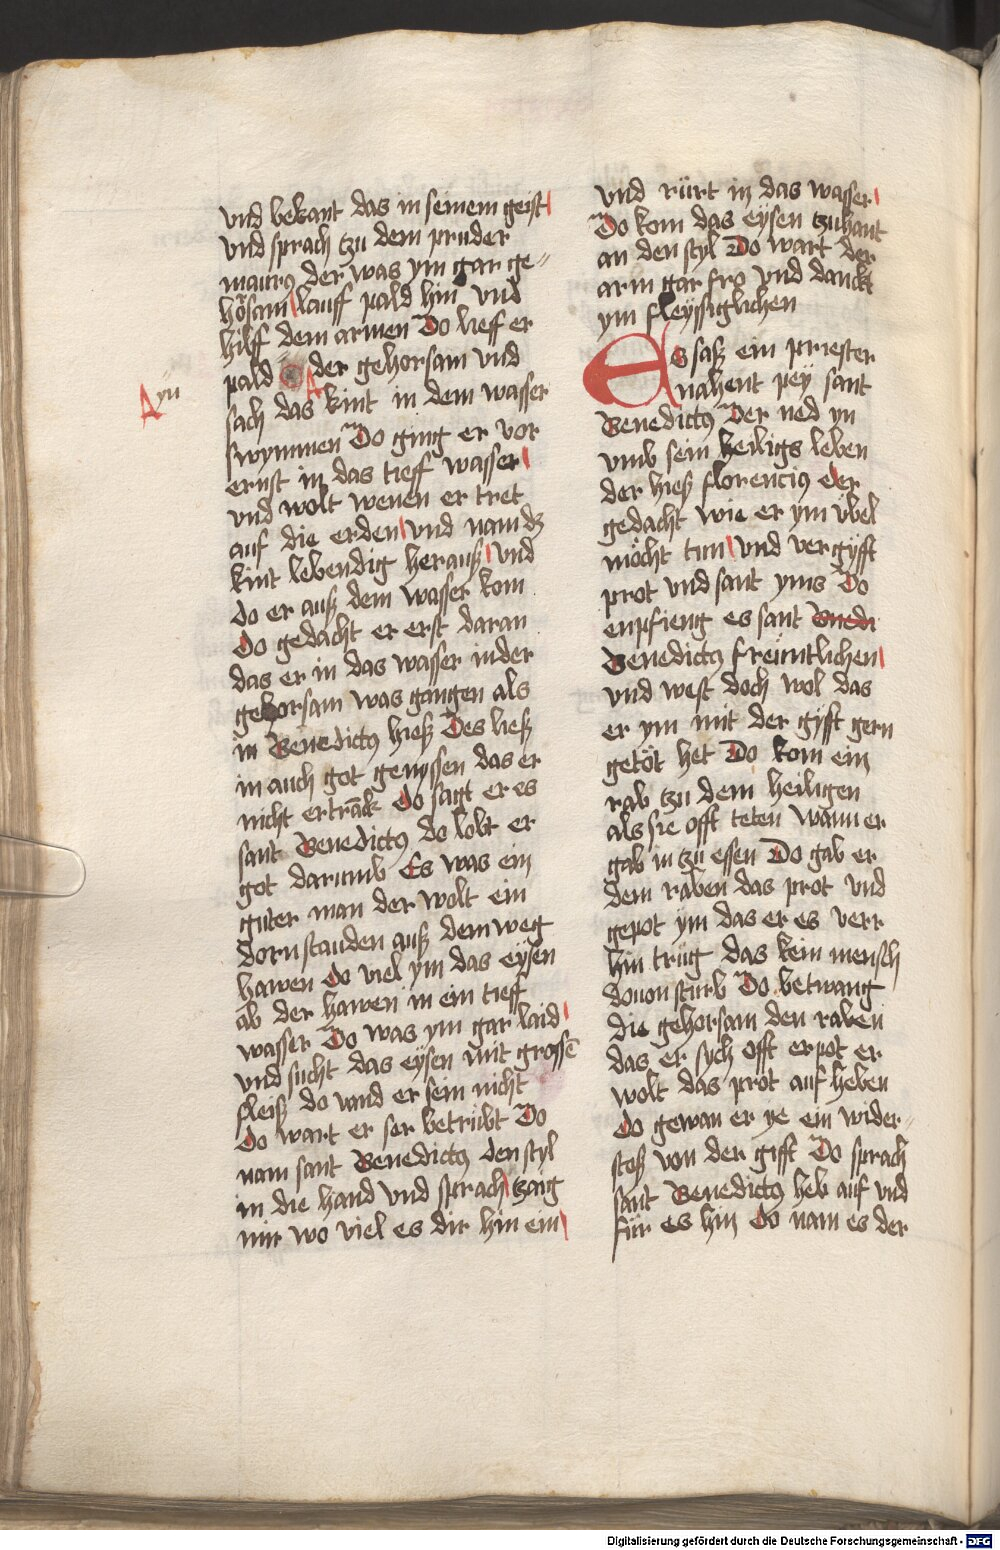 vnd bekant das in seinem geist
vnd sprach tzu dem pruder
maurꝰ der was ym gar ge-
hösam lauff pald hin vnd
hilff dem armen Do lieff er
pald der gehorsam vnd
A yn
sach das kint in dem wasser
swymmen Do ging er vor
ernst in das tieff wasser
vnd wolt wenen er tret
auf die erden vnd nam dz
kint lebendig herauß vnd
do er auß dem wasser kom
Do gedacht er erst daran
das er in das wasser in der
gehorsam was gangen als
in Benedictꝰ hieß Des ließ
in auch got genyssen das er
nicht ertranck Do sagt er es
sant Benedictꝰ do lobt er
got darumb Es was ein
guter man der wolt ein
dornstauden auß dem weg
hawen do viel ym das eysen
ab der hawen in ein tieff
wasser Do was ym gar laid
vnd sucht das eysen mit grossē
fleiß do vand er sein nicht
Do wart er ser betrübt Do
nam sant Benedictꝰ den styl
in die hand vnd sprach tzaig
mir wo viel es dir hin ein
vnd rürt in das wasser
Do kom das eysen tzuhant
an den styl Do wart der
arm gar fro vnd danckt
ym fleyssiglichen
Es saß ein priester
nahent pey sant
Benedictꝰ Der ned yn
vmb sein heiligs leben
der hieß florencius der
gedacht wie er ym vbel
möcht tun vnd vergyfft
prot vnd sant yms Do
enpfieng es sant Benedi
Benedictꝰ freüntlichen
vnd west doch wol das
er ym mit der gyft gern
getöt het Do kom ein
rab tzu dem heiligen
als sie offt teten wann er
gab in tzu essen Do gab er
dem raben das prot vnd
gepot ym das er es verr
hin trüg das kein mensch
douon stürb Do betwang
die gehorsam den raben
das er sych offt erpot er
wolt das prot auf heben
do gewan er ye ein wider-
stoß von der gifft Do sprach
sant Benedictꝰ heb auf vnd
für es hin Do nam es der
Digitalisierung gefördert durch die Deutsche Forschungsgemeinschaft - DFG